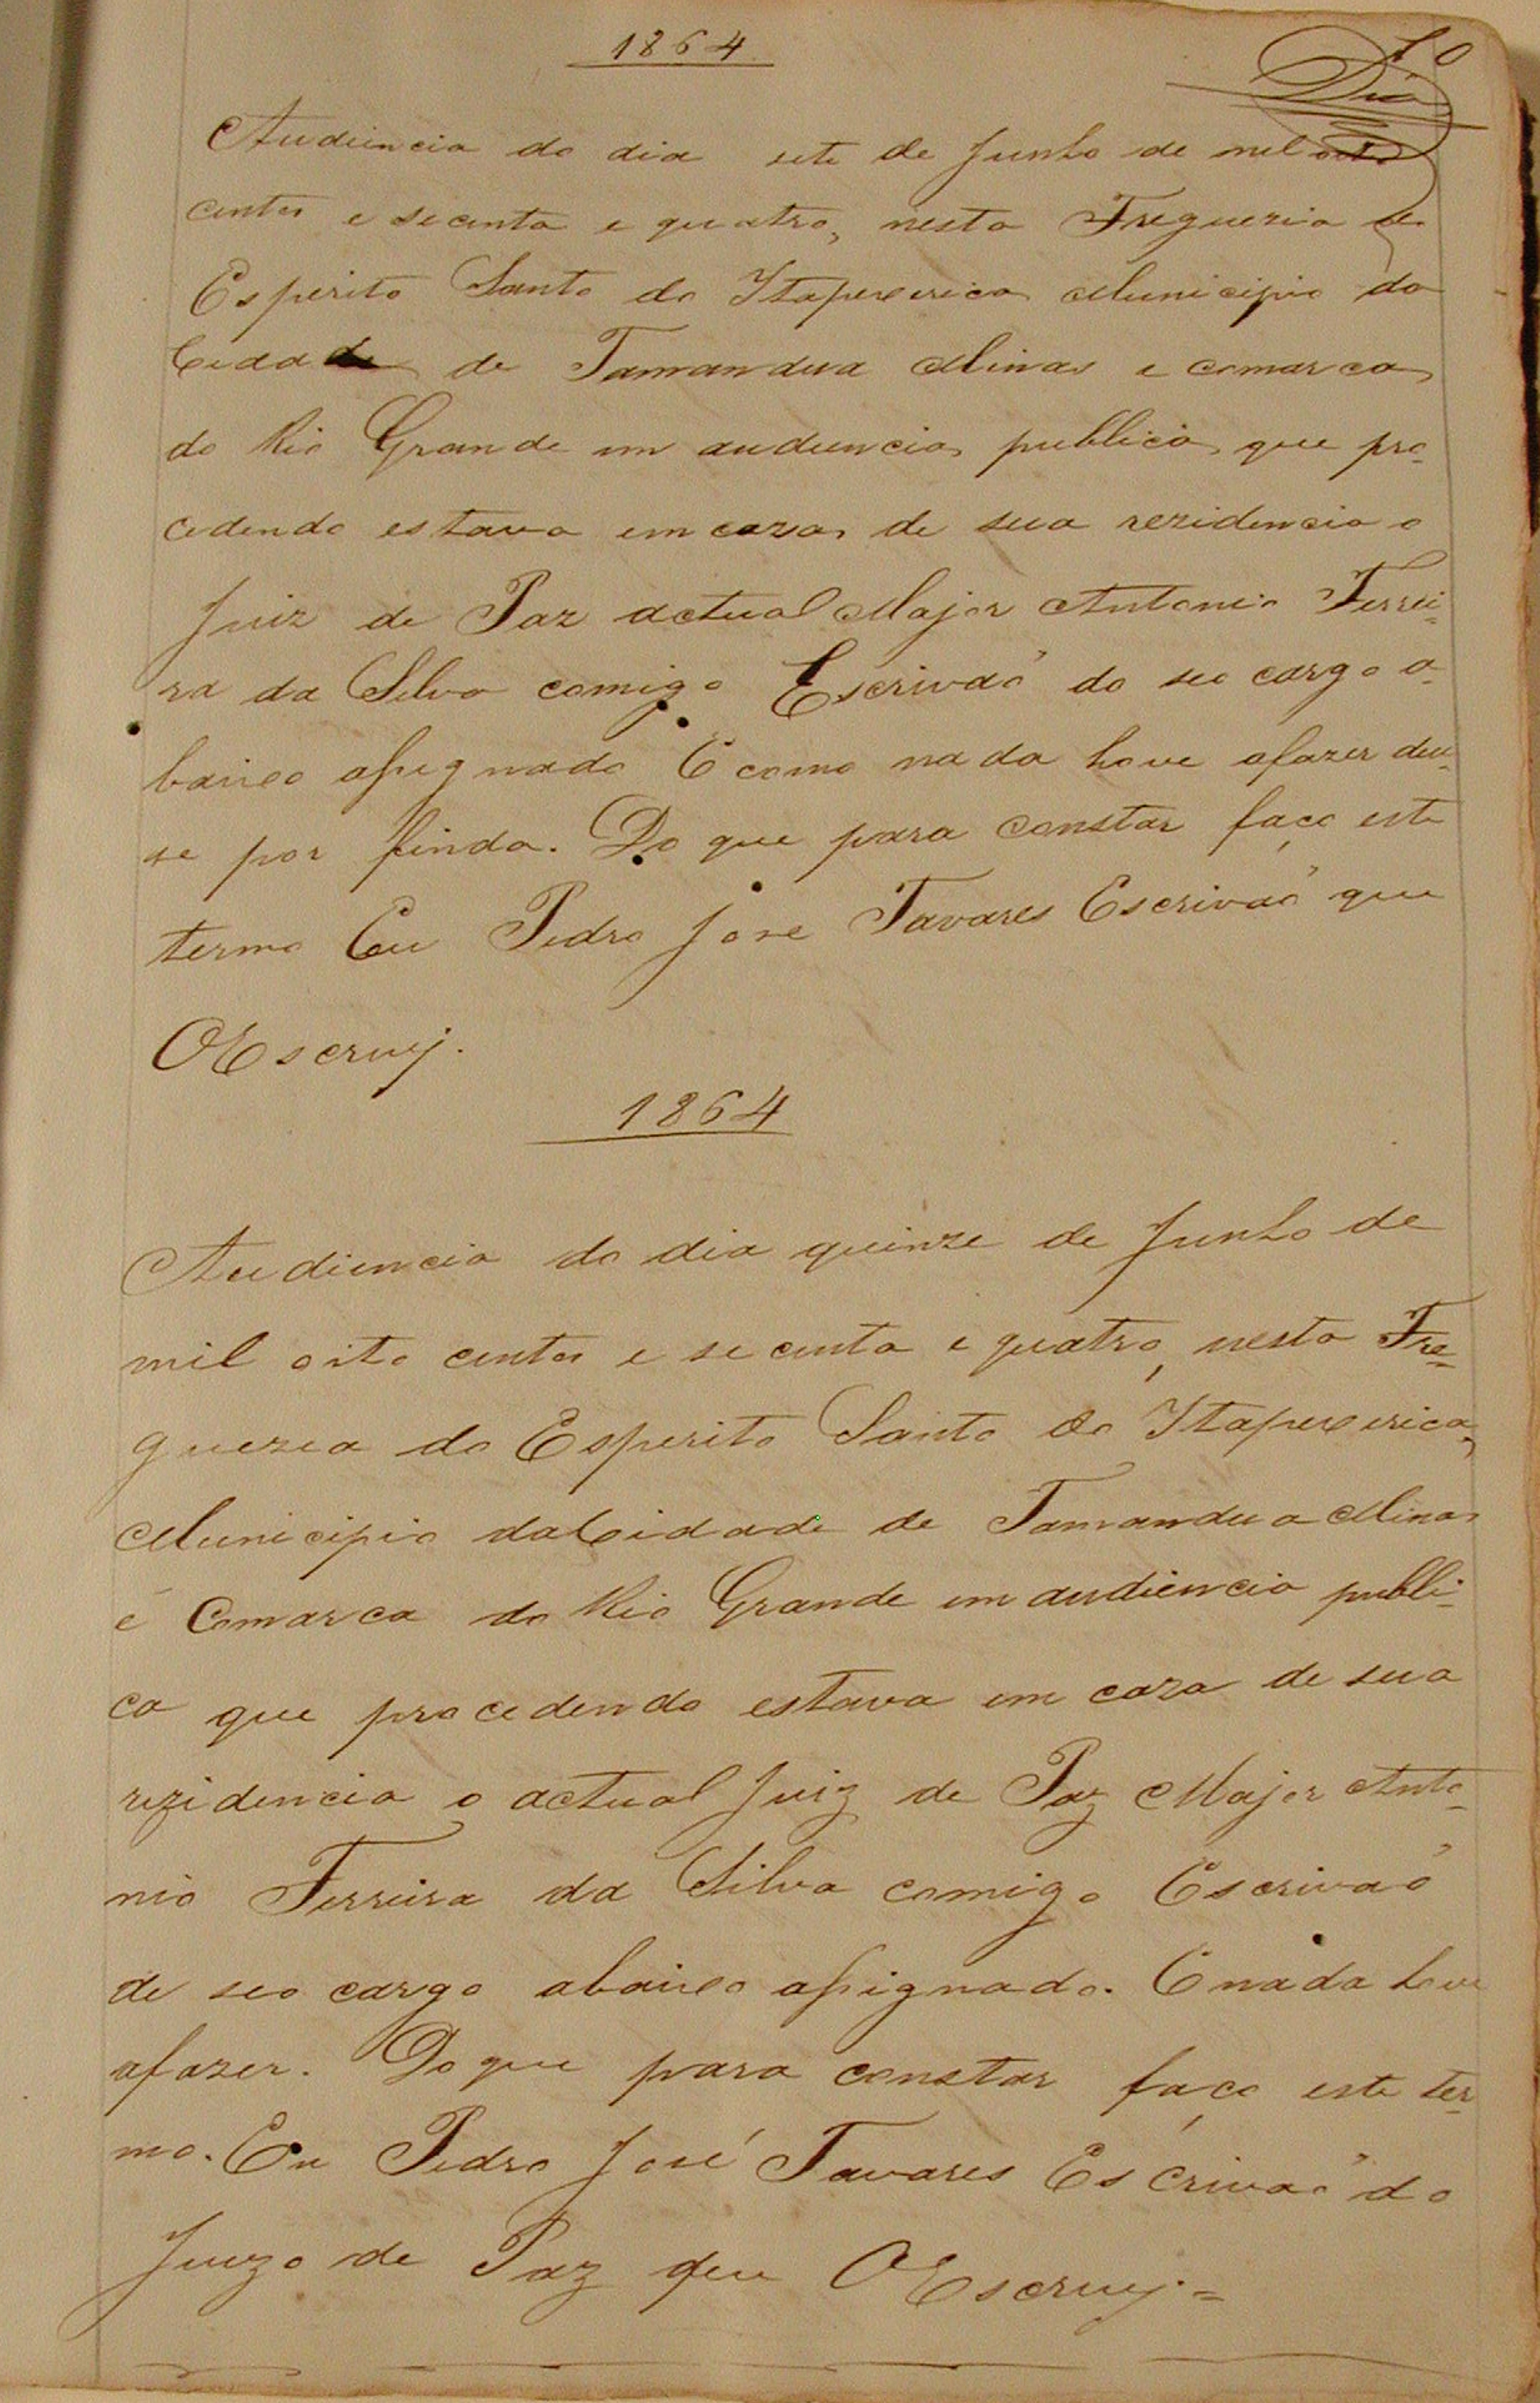 1864
10
Audiencia do dia sete de Junho de mil oito
centos e secenta e quatro, nesta Fregueria do
Esperito Santo do Itapexerica Municipio da
Cidade de Tamandua Minas e comarca
do Rio Grande em audiencia publica que pro-
cedendo estava em caza de sua rezidencia o
Juiz de Paz actual Major Antonio Ferrei-
ra da Silva comigo Escrivaõ do seo cargo a-
baixo assignado E como nada hove afazer deu-
se por finda. Do que para constar faço este
termo Eu Pedro Jose Tavares Escrivaõ que
OEscrevj.
1864
Audiencia do dia quinze de Junho de
mil oito centos e secenta e quatro, nesta Fre-
guezia do Esperito Santo do Itapexerica,
Municipio daCidade de Tamandua Minas
e Comarca do Rio Grande em audiencia publi-
ca que procedendo estava em caza de sua
rezidencia o actual Juiz de Paz Major Anto-
nio Ferreira da Silva comigo Escrivaõ
de seo cargo abaixo assignado. E nada hove
afazer. Do que para constar faço este ter-
mo. Eu Pedro José Tavares Escrivaõ do
Juizo de Paz que OEscrevj.=